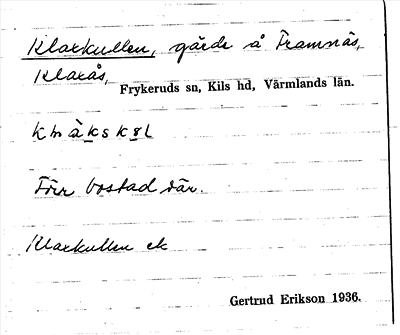 Klaxkullen, gärde å Framnäs,
Klaxås,
Frykeruds sn, Kils hd, Värmlands län.
Förr bostad där.
Klaxkullen ek
Gertrud Erikson 1936.